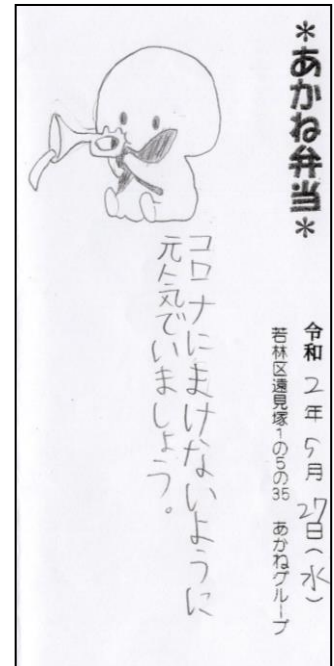 *あかね弁当*
令和2年5月27日(水)
若林区遠見塚1の5の35 あかねグループ
コロナにまけないように
元気でいましょう。